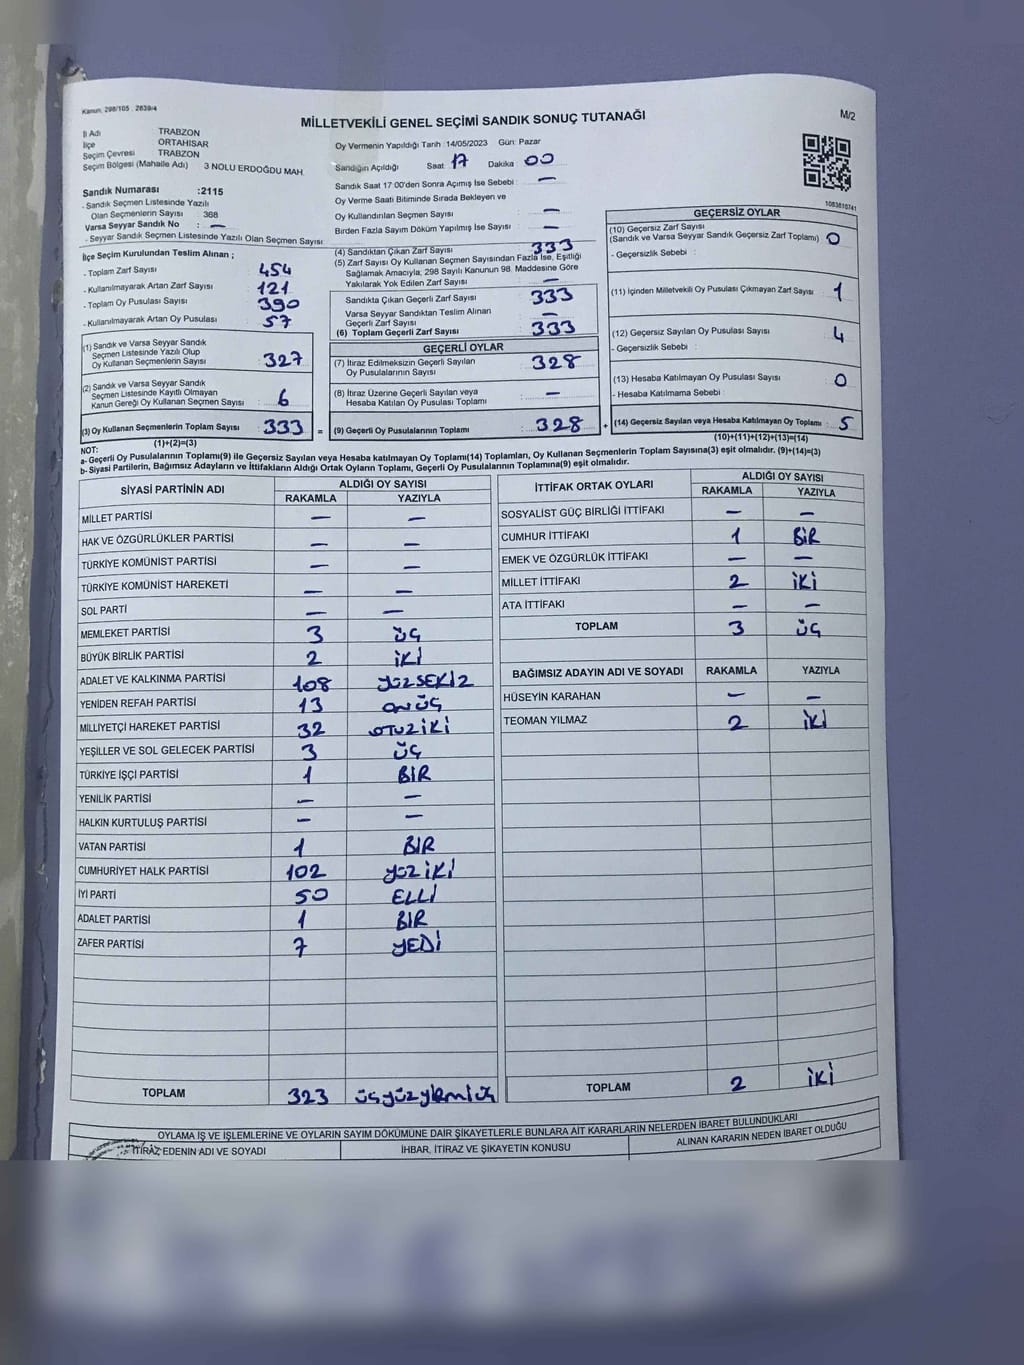 Kanun: 298/105 : 2839/4
M/2
MİLLETVEKİLİ GENEL SEÇİMİ SANDIK SONUÇ TUTANAĞI
İl Adı TRABZON
İlçe ORTAHISAR
Seçim Çevresi TRABZON
Seçim Bölgesi (Mahalle Adı) 3 NOLU ERDOĞDU MAH.
Sandık Numarası :2115
- Sandık Seçmen Listesinde Yazılı
Olan Seçmenlerin Sayısı : 368
Varsa Seyyar Sandık No : —
- Seyyar Sandık Seçmen Listesinde Yazılı Olan Seçmen Sayısı
Oy Vermenin Yapıldığı Tarih :14/05/2023 Gün: Pazar
Sandığın Açıldığı Saat 17 Dakika 00
Sandık Saat 17:00'den Sonra Açılmış İse Sebebi : —
Oy Verme Saati Bitiminde Sırada Bekleyen ve
Oy Kullandırılan Seçmen Sayısı : —
Birden Fazla Sayım Döküm Yapılmış İse Sayısı : —
1083610741
İlçe Seçim Kurulundan Teslim Alınan ;
- Toplam Zarf Sayısı : 454
- Kullanılmayarak Artan Zarf Sayısı : 121
- Toplam Oy Pusulası Sayısı : 390
- Kullanılmayarak Artan Oy Pusulası : 57
(1) Sandık ve Varsa Seyyar Sandık
Seçmen Listesinde Yazılı Olup
Oy Kullanan Seçmenlerin Sayısı : 327
(2) Sandık ve Varsa Seyyar Sandık
Seçmen Listesinde Kayıtlı Olmayan
Kanun Gereği Oy Kullanan Seçmen Sayısı : 6
(3) Oy Kullanan Seçmenlerin Toplam Sayısı : 333
(1)+(2)=(3)
(4) Sandıktan Çıkan Zarf Sayısı : 333
(5) Zarf Sayısı Oy Kullanan Seçmen Sayısından Fazla İse, Eşitliği
Sağlamak Amacıyla, 298 Sayılı Kanunun 98. Maddesine Göre
Yakılarak Yok Edilen Zarf Sayısı : —
Sandıkta Çıkan Geçerli Zarf Sayısı : 333
Varsa Seyyar Sandıktan Teslim Alınan
Geçerli Zarf Sayısı : —
(6) Toplam Geçerli Zarf Sayısı : 333
GEÇERLİ OYLAR
(7) İtiraz Edilmeksizin Geçerli Sayılan
Oy Pusulalarının Sayısı : 328
(8) İtiraz Üzerine Geçerli Sayılan veya
Hesaba Katılan Oy Pusulası Toplamı : —
= (9) Geçerli Oy Pusulalarının Toplamı : 328
GEÇERSİZ OYLAR
(10) Geçersiz Zarf Sayısı
(Sandık ve Varsa Seyyar Sandık Geçersiz Zarf Toplamı) : 0
- Geçersizlik Sebebi :
(11) İçinden Milletvekili Oy Pusulası Çıkmayan Zarf Sayısı : 1
(12) Geçersiz Sayılan Oy Pusulası Sayısı : 4
- Geçersizlik Sebebi :
(13) Hesaba Katılmayan Oy Pusulası Sayısı : 0
- Hesaba Katılmama Sebebi :
+ (14) Geçersiz Sayılan veya Hesaba Katılmayan Oy Toplamı : 5
(10)+(11)+(12)+(13)=(14)
NOT:
a- Geçerli Oy Pusulalarının Toplamı(9) ile Geçersiz Sayılan veya Hesaba Katılmayan Oy Toplamı(14) Toplamları, Oy Kullanan Seçmenlerin Toplam Sayısına(3) eşit olmalıdır. (9)+(14)=(3)
b- Siyasi Partilerin, Bağımsız Adayların ve İttifakların Aldığı Ortak Oyların Toplamı, Geçerli Oy Pusulalarının Toplamına(9) eşit olmalıdır.
SİYASİ PARTİNİN ADI ALDIĞI OY SAYISI
RAKAMLA YAZIYLA
MİLLET PARTİSİ — —
HAK VE ÖZGÜRLÜKLER PARTİSİ — —
TÜRKİYE KOMÜNİST PARTİSİ — —
TÜRKİYE KOMÜNİST HAREKETİ — —
SOL PARTİ — —
MEMLEKET PARTİSİ 3 ÜÇ
BÜYÜK BİRLİK PARTİSİ 2 İKİ
ADALET VE KALKINMA PARTİSİ 108 YÜZSEKİZ
YENİDEN REFAH PARTİSİ 13 ONÜÇ
MİLLİYETÇİ HAREKET PARTİSİ 32 OTUZİKİ
YEŞİLLER VE SOL GELECEK PARTİSİ 3 ÜÇ
TÜRKİYE İŞÇİ PARTİSİ 1 BİR
YENİLİK PARTİSİ — —
HALKIN KURTULUŞ PARTİSİ — —
VATAN PARTİSİ 1 BİR
CUMHURİYET HALK PARTİSİ 102 YÜZİKİ
İYİ PARTİ 50 ELLİ
ADALET PARTİSİ 1 BİR
ZAFER PARTİSİ 7 YEDİ
TOPLAM 323 üçyüzyirmiüç
İTTİFAK ORTAK OYLARI ALDIĞI OY SAYISI
RAKAMLA YAZIYLA
SOSYALİST GÜÇ BİRLİĞİ İTTİFAKI — —
CUMHUR İTTİFAKI 1 BİR
EMEK VE ÖZGÜRLÜK İTTİFAKI — —
MİLLET İTTİFAKI 2 İKİ
ATA İTTİFAKI — —
TOPLAM 3 ÜÇ
BAĞIMSIZ ADAYIN ADI VE SOYADI RAKAMLA YAZIYLA
HÜSEYİN KARAHAN — —
TEOMAN YILMAZ 2 İKİ
TOPLAM 2 İKİ
OYLAMA İŞ VE İŞLEMLERİNE VE OYLARIN SAYIM DÖKÜMÜNE DAİR ŞİKAYETLERLE BUNLARA AİT KARARLARIN NELERDEN İBARET BULUNDUKLARI
İTİRAZ EDENİN ADI VE SOYADI İHBAR, İTİRAZ VE ŞİKAYETİN KONUSU ALINAN KARARIN NEDEN İBARET OLDUĞU